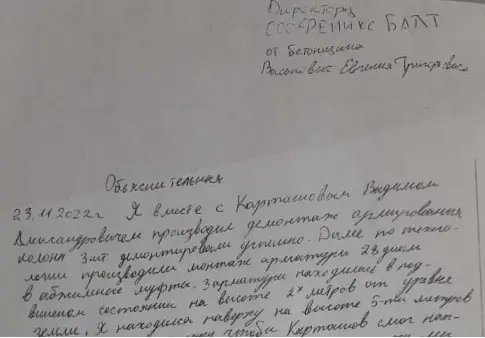 Директору
ООО ФЕНИКС БАЛТ
от бетонщика
Евгения Григорьевича
Объяснительная
23.11.2022г Я вместе с Карташовым Вадимом
Александровичем производил демонтаж армирования
колонн 3 шт демонтировали успешно. Далее по техно-
логии производили монтаж арматуры 28 диам
в обжимные муфты. Зарматура находилась в под-
вишеном состоянии на высоте 2х метров от уровня
земли. Я находился наверху на высоте 5-ти метров
чтобы Карташов смог